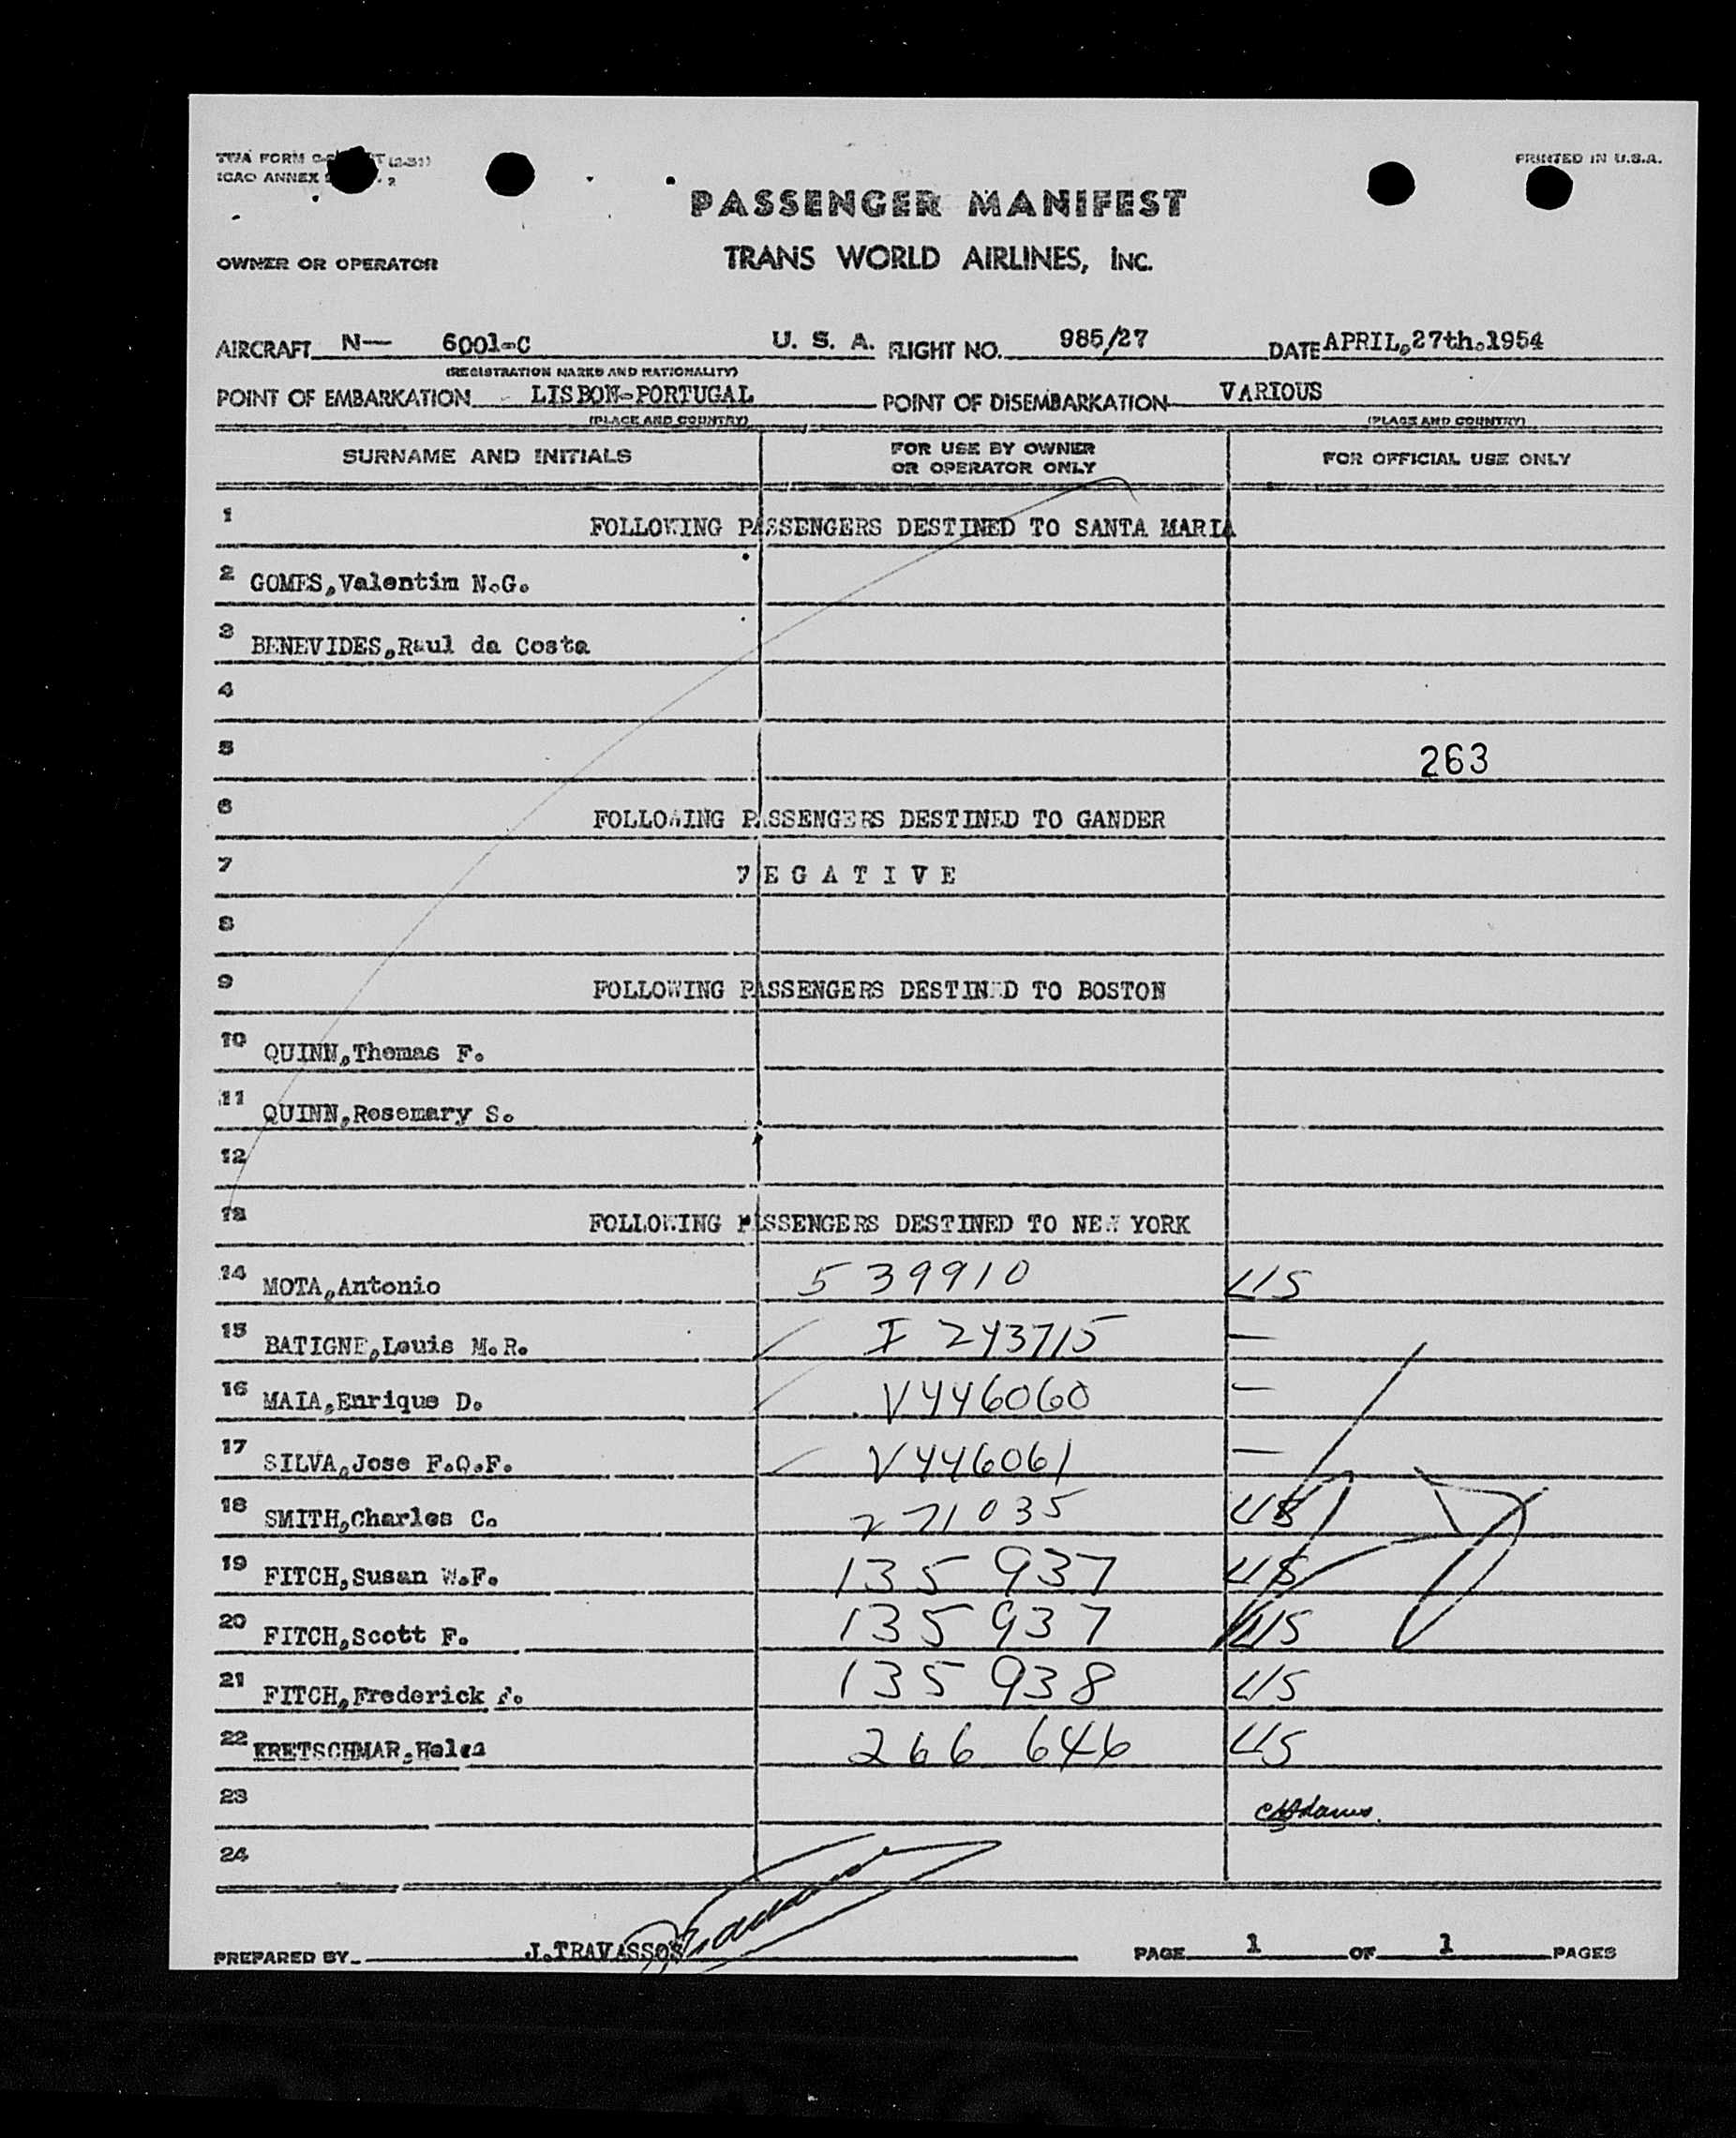 PRINTED IN U.S.A.
PASSENGER MANIFEST
TRANS WORLD AIRLINES, INC.
OWNER OR OPERATOR
AIRCRAFT N— 6001-C U. S. A. FLIGHT NO. 985/27 DATE APRIL,27th.1954
(REGISTRATION MARKS AND NATIONALITY)
POINT OF EMBARKATION LISBON-PORTUGAL POINT OF DISEMBARKATION VARIOUS
(PLACE AND COUNTRY) (PLACE AND COUNTRY)
SURNAME AND INITIALS FOR USE BY OWNER OR OPERATOR ONLY FOR OFFICIAL USE ONLY
1 FOLLOWING PASSENGERS DESTINED TO SANTA MARIA
2 GOMES,Valentim N.G.
3 BENEVIDES,Raul da Costa
4
5 263
6 FOLLOWING PASSENGERS DESTINED TO GANDER
7 NEGATIVE
8
9 FOLLOWING PASSENGERS DESTINED TO BOSTON
10 QUINN,Thomas F.
11 QUINN,Rosemary S.
12
13 FOLLOWING PASSENGERS DESTINED TO NEW YORK
14 MOTA,Antonio 539910 US
15 BATIGNE,Louis M.R. I 243715 —
16 MAIA,Enrique D. V446060 —
17 SILVA,Jose F.Q.F. V446061 —
18 SMITH,Charles C. 271035 US
19 FITCH,Susan W.F. 135 937 US
20 FITCH,Scott F. 135 937 US
21 FITCH,Frederick F. 135 938 US
22 KRETSCHMAR,Helen 266 646 US
23 Adams.
24
PREPARED BY J.TRAVASSOS PAGE 1 OF 1 PAGES